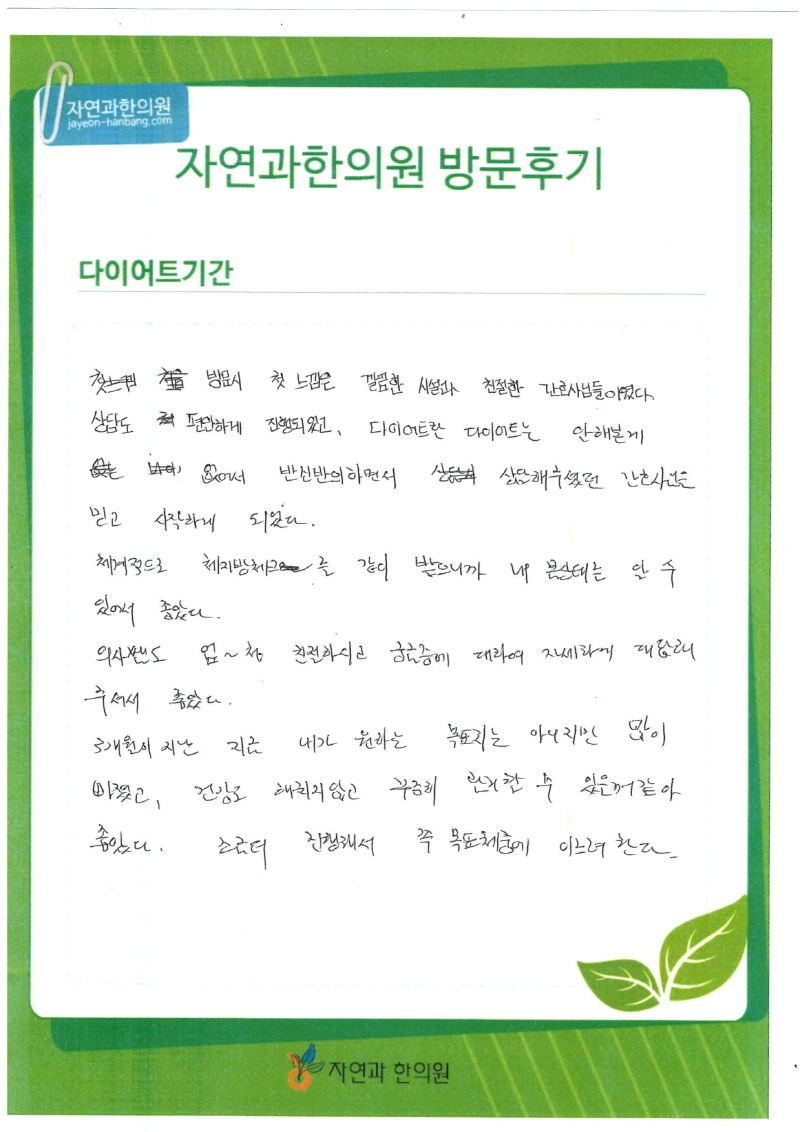 자연과한의원
jayeon-hanbang.com
자연과한의원 방문후기
다이어트기간
방문시 첫 느낌은 깔끔한 시설과 친절한 간호사님들이였다.
상담도 편안하게 진행되었고, 다이어트란 다이어트는 안해본게
없어서 반신반의하면서 상담해주셨던 간호사님을
믿고 시작하게 되었다.
체계적으로 체지방체크를 같이 받으니까 내 몸상태는 알 수
있어서 좋았다.
의사쌤도 엄~청 친절하시고 궁금증에 대하여 자세하게 대답해
주셔서 좋았다.
3개월이 지난 지금 내가 원하는 목표치는 아니지만 많이
빠졌고, 건강도 해치지않고 꾸준히 관리할 수 있을꺼같아
좋았다. 조금더 진행해서 꼭 목표체중에 이르려 한다.
자연과 한의원